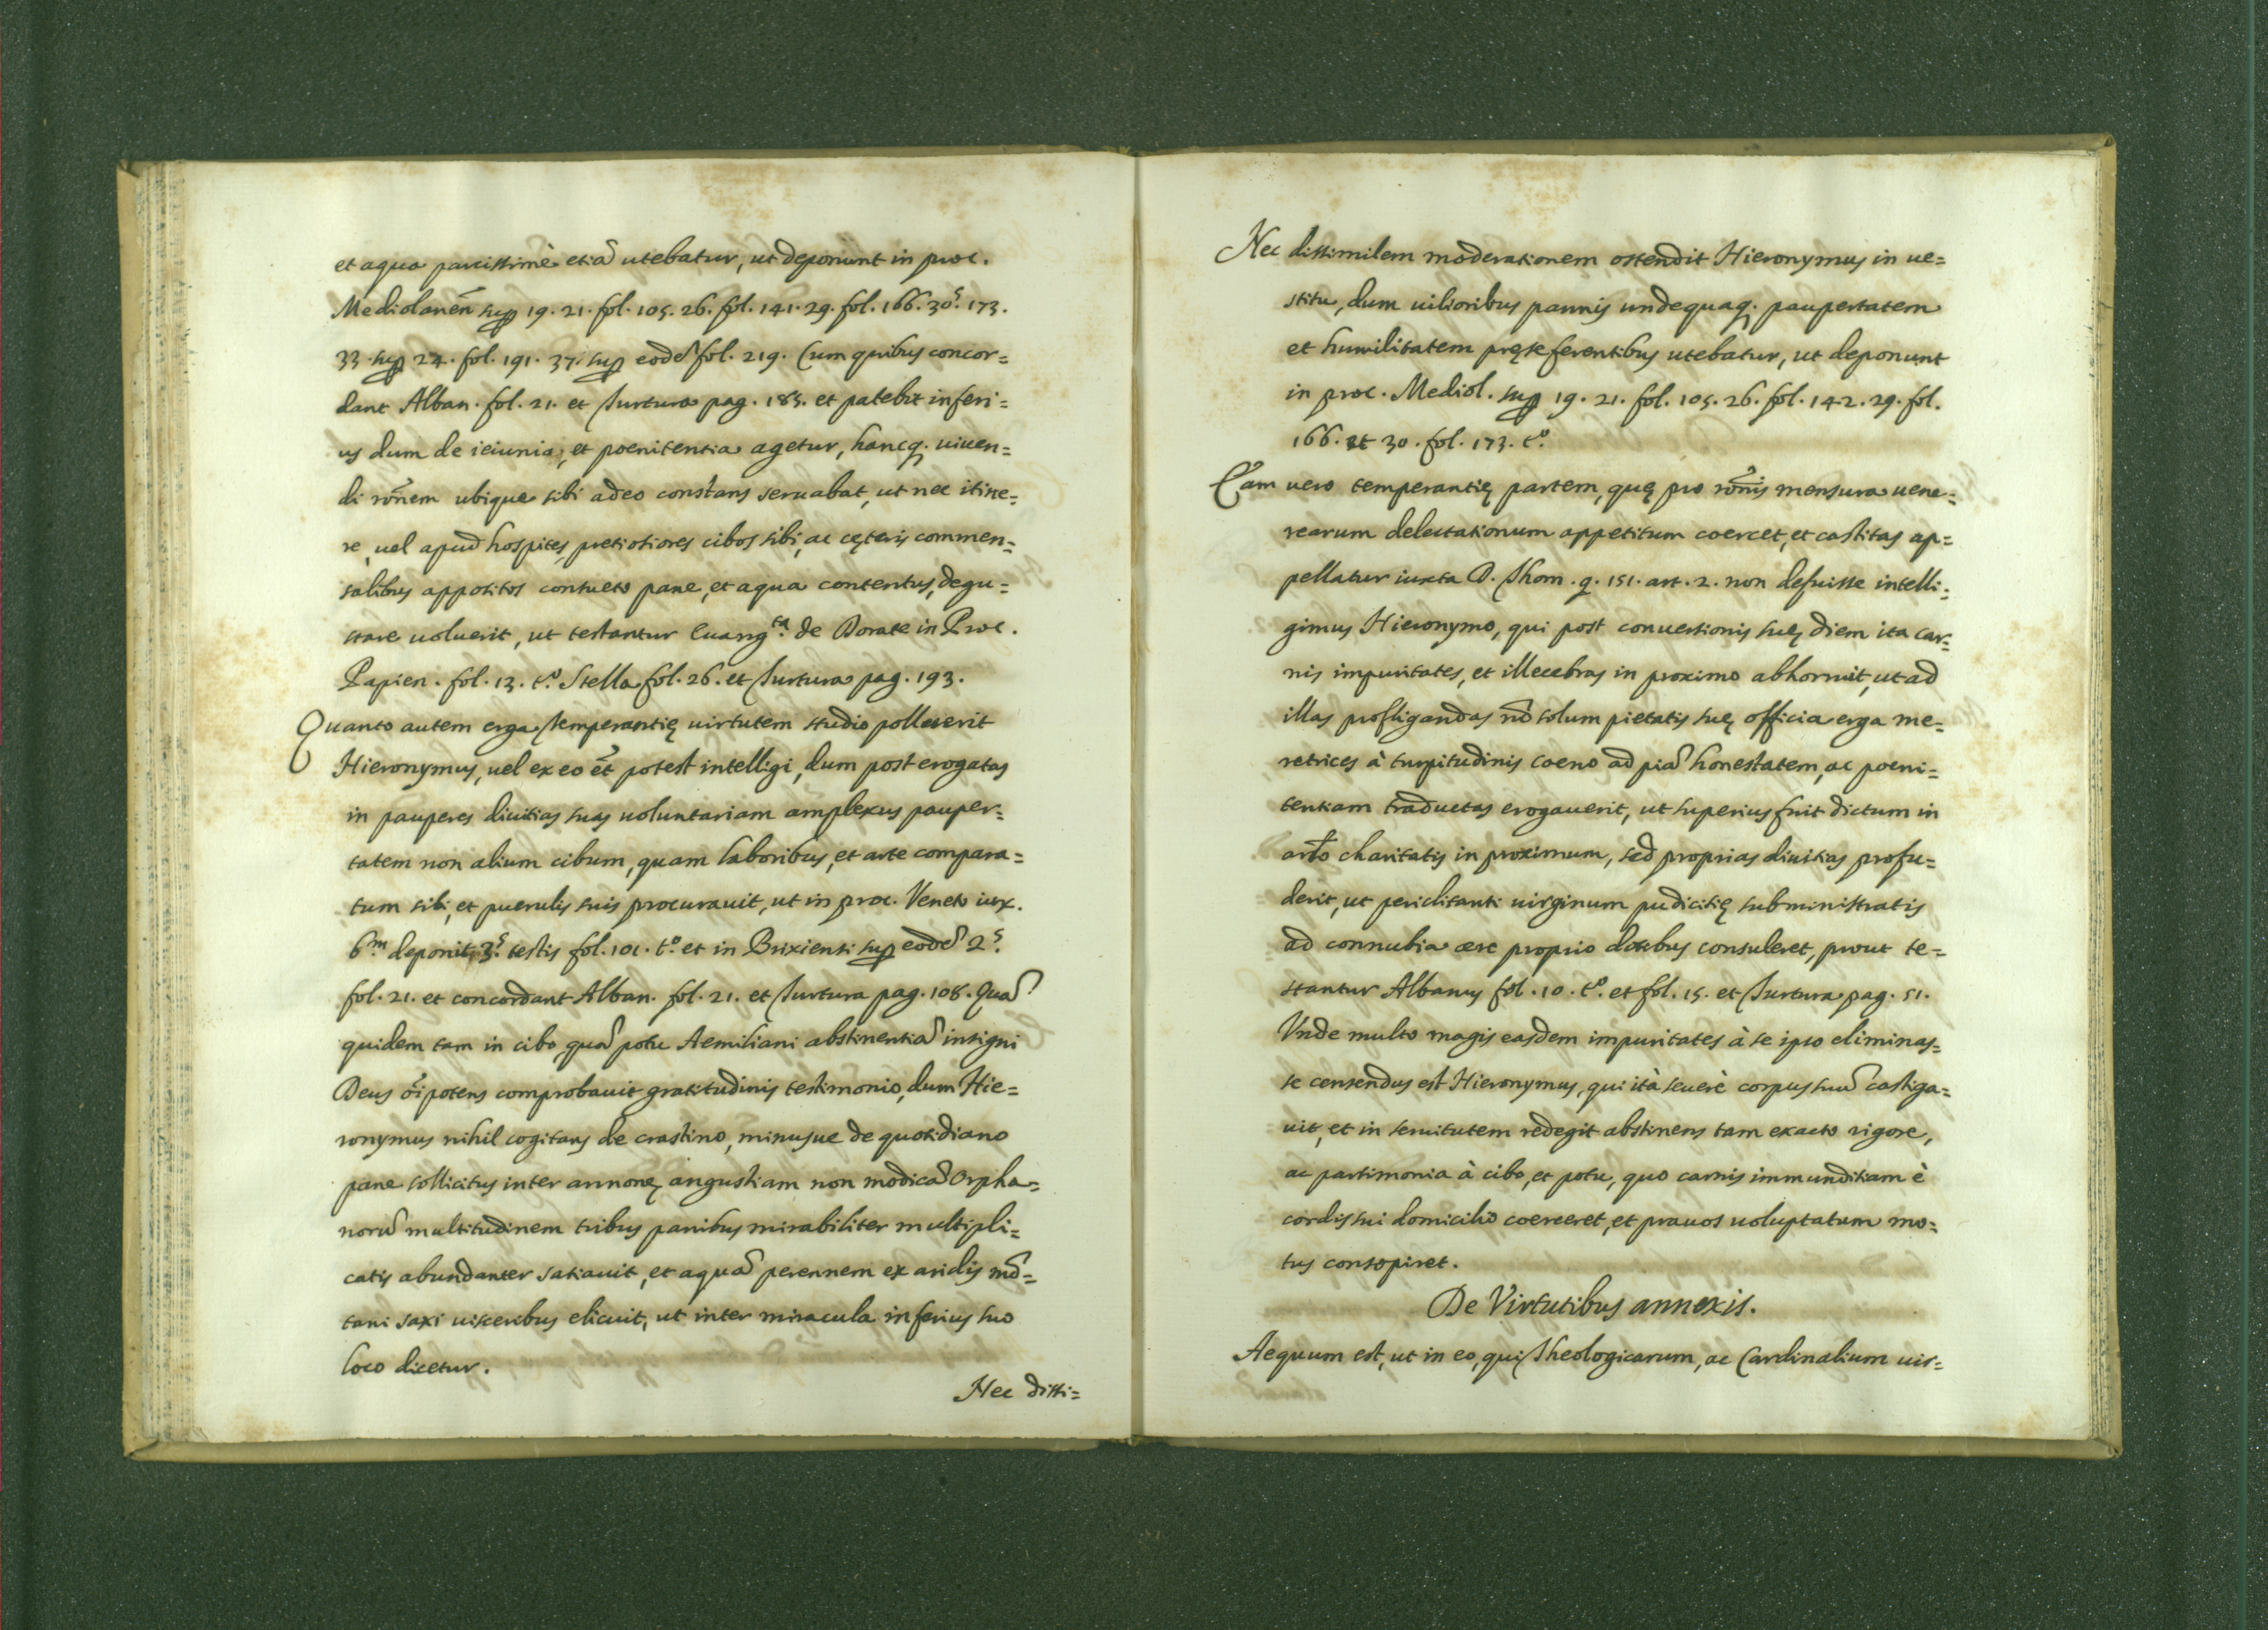 et aqua parcissimè etiā utebatur, ut deponunt in proc.
Mediolanēn sup 19. 21. fol. 105. 26. fol. 141. 29. fol. 166. 30.ˢ 173.
33. sup 24. fol. 191. 37. sup eodē fol. 219. Cum quibus concor=
dant Alban. fol. 21. et Turtura pag. 185. et patebit inferi=
us dum de ieiunio, et poenitentia agetur, hancq. uiuen=
di rōnem ubique sibi adeo constans seruabat, ut nec itine=
re, uel apud hospites, pretiosiores cibos sibi, ac cęteris commen=
salibus appositos consueto pane, et aqua contentus, degu=
stare uoluerit, ut testantur Euangᵗᵃ. de Dorate in Proc.
Papien. fol. 13. tº. Stella fol. 26. et Turtura pag. 193.
Quanto autem erga Temperantię uirtutem studio polluerit
Hieronymus, uel ex eo ēt potest intelligi, dum post erogatas
in pauperes diuitias suas uoluntariam amplexus pauper=
tatem non alium cibum, quam laboribus, et arte compara=
tum sibi, et puerulis suis procurauit, ut in proc. Veneto iux.
6ᵐ deponit 3.ˢ testis fol. 101. tº. et in Brixiensi sup eodē 2.ˢ
fol. 21. et concordant Alban. fol. 21. et Turtura pag. 108. Quā
quidem tam in cibo, quā potu Aemiliani abstinentiā insigni
Deus oīpotens comprobauit gratitudinis testimonio, dum Hie=
ronymus nihil cogitans de crastino, minusue de quotidiano
pane sollicitus inter annonę angustiam non modicā Orpha=
norū multitudinem tribus panibus mirabiliter multipli=
catis abundanter satiauit, et aquā perennem ex aridis mō=
tani saxi uisceribus elicuit, ut inter miracula inferius suo
loco dicetur.
Nec dissi=
Nec dissimilem moderationem ostendit Hieronymus in ue=
stitu, dum uilioribus pannis undequaq. paupertatem
et humilitatem pręseferentibus utebatur, ut deponunt
in proc. Mediol. sup 19. 21. fol. 105. 26. fol. 142. 29. fol.
166. et 30. fol. 173. tº.
Eam uero temperantię partem, quę pro rōnis mensura uene=
rearum delectationum appetitum coercet, et castitas ap=
pellatur iuxta D. Thom. q. 151. art. 2. non defuisse intelli=
gimus Hieronymo, qui post conuersionis suę diem ita car=
nis impuritates, et illecebras in proximo abhorruit, ut ad
illas profligandas nō solum pietatis suę officia erga me=
retrices à turpitudinis coeno ad piā honestatem, ac poeni=
tentiam traductas erogauerit, ut superius fuit dictum in
arto charitatis in proximum, sed proprias diuitias profu=
derit, ut periclitanti uirginum pudicitię subministratis
ad connubia aere proprio dotibus consuleret, prout te=
stantur Albanus fol. 10. tº. et fol. 15. et Turtura pag. 51.
Vnde multo magis easdem impuritates à se ipso eliminas=
se censendus est Hieronymus, qui ità seuerè corpus suū castiga=
uit, et in seruitutem redegit abstinens tam exacto rigore,
ac parsimonia à cibo, et potu, quo carnis immunditiam è
cordis sui domicilio coerceret, et prauos uoluptatum mo=
tus consopiret.
De Virtutibus annexis.
Aequum est, ut in eo, qui Theologicarum, ac Cardinalium uir=